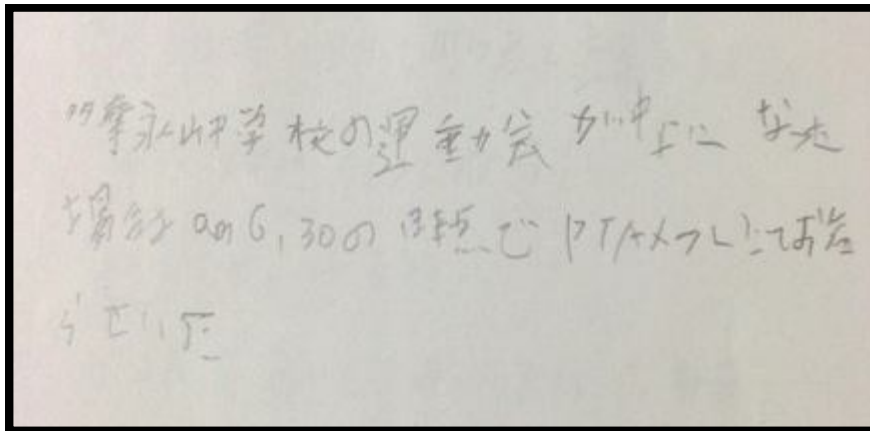 永山中学校の運動会が中止になった
場合はam6,30の時点でPTAメールにてお知
らせいた